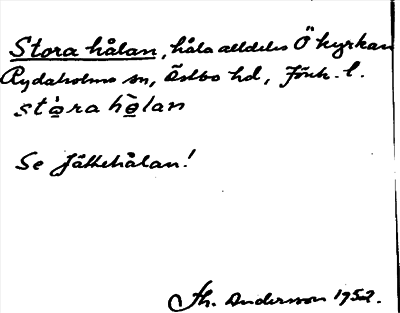 Stora hålan, håla alldeles Ö kyrkan
Rydaholms sn, Östbo hd, Jönk. l.
stòra hòlan
Se Jättehålan!
Th. Andersson 1952.